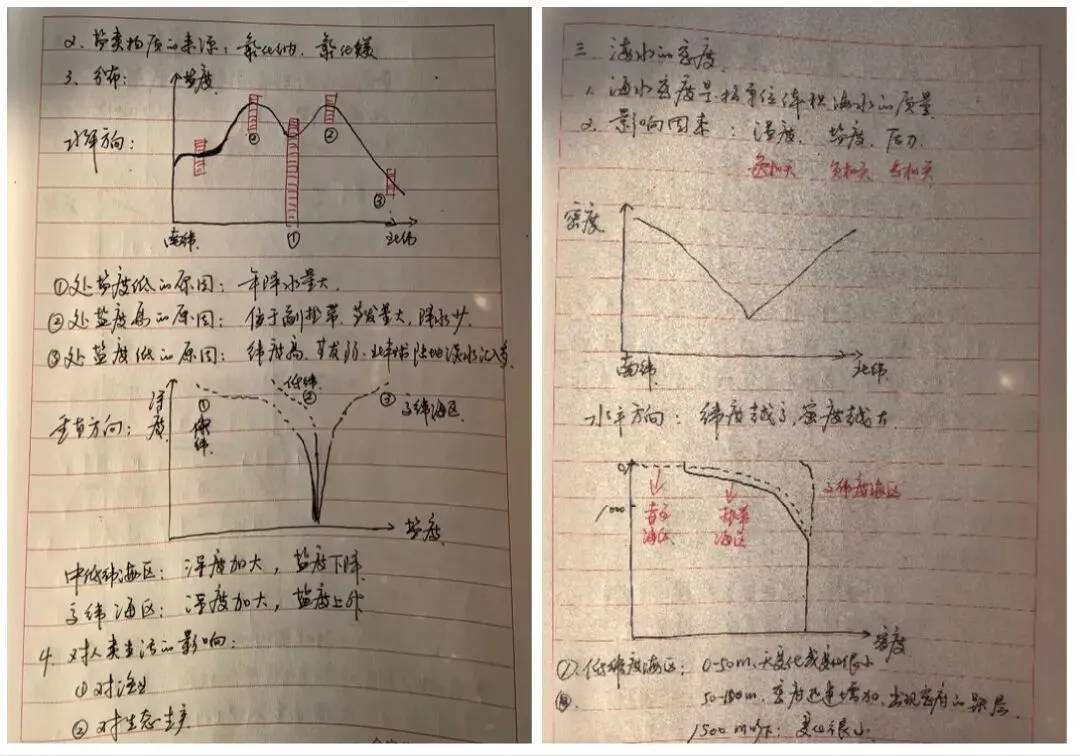 2. 盐类物质的来源：氯化钠、氯化镁
3. 分布：
盐度
水平方向：
② ②
③
南纬 ① 北纬
①处盐度低的原因：年降水量大.
②处盐度高的原因：位于副热带.蒸发量大,降水少.
③处盐度低的原因：纬度高.蒸发弱.陆地淡水汇入
深度
低纬
① ② ③
高纬海区
垂直方向：
盐度
中低纬海区：深度加大，盐度下降
高纬海区：深度加大，盐度上升
4. 对人类生活的影响：
①对渔业
②对生态生产
三. 海水的密度
1. 海水密度是指单位体积海水的质量
2. 影响因素：温度、盐度、压力.
负相关
密度
南纬 北纬
水平方向：纬度越高,密度越大
0
1000
赤道海区
热带海区
高纬度海区
密度
①.低纬度海区：0-50m.无变化或变化很小
50-150m.密度迅速增加,出现密度的跃层
1500m以下：变化很小